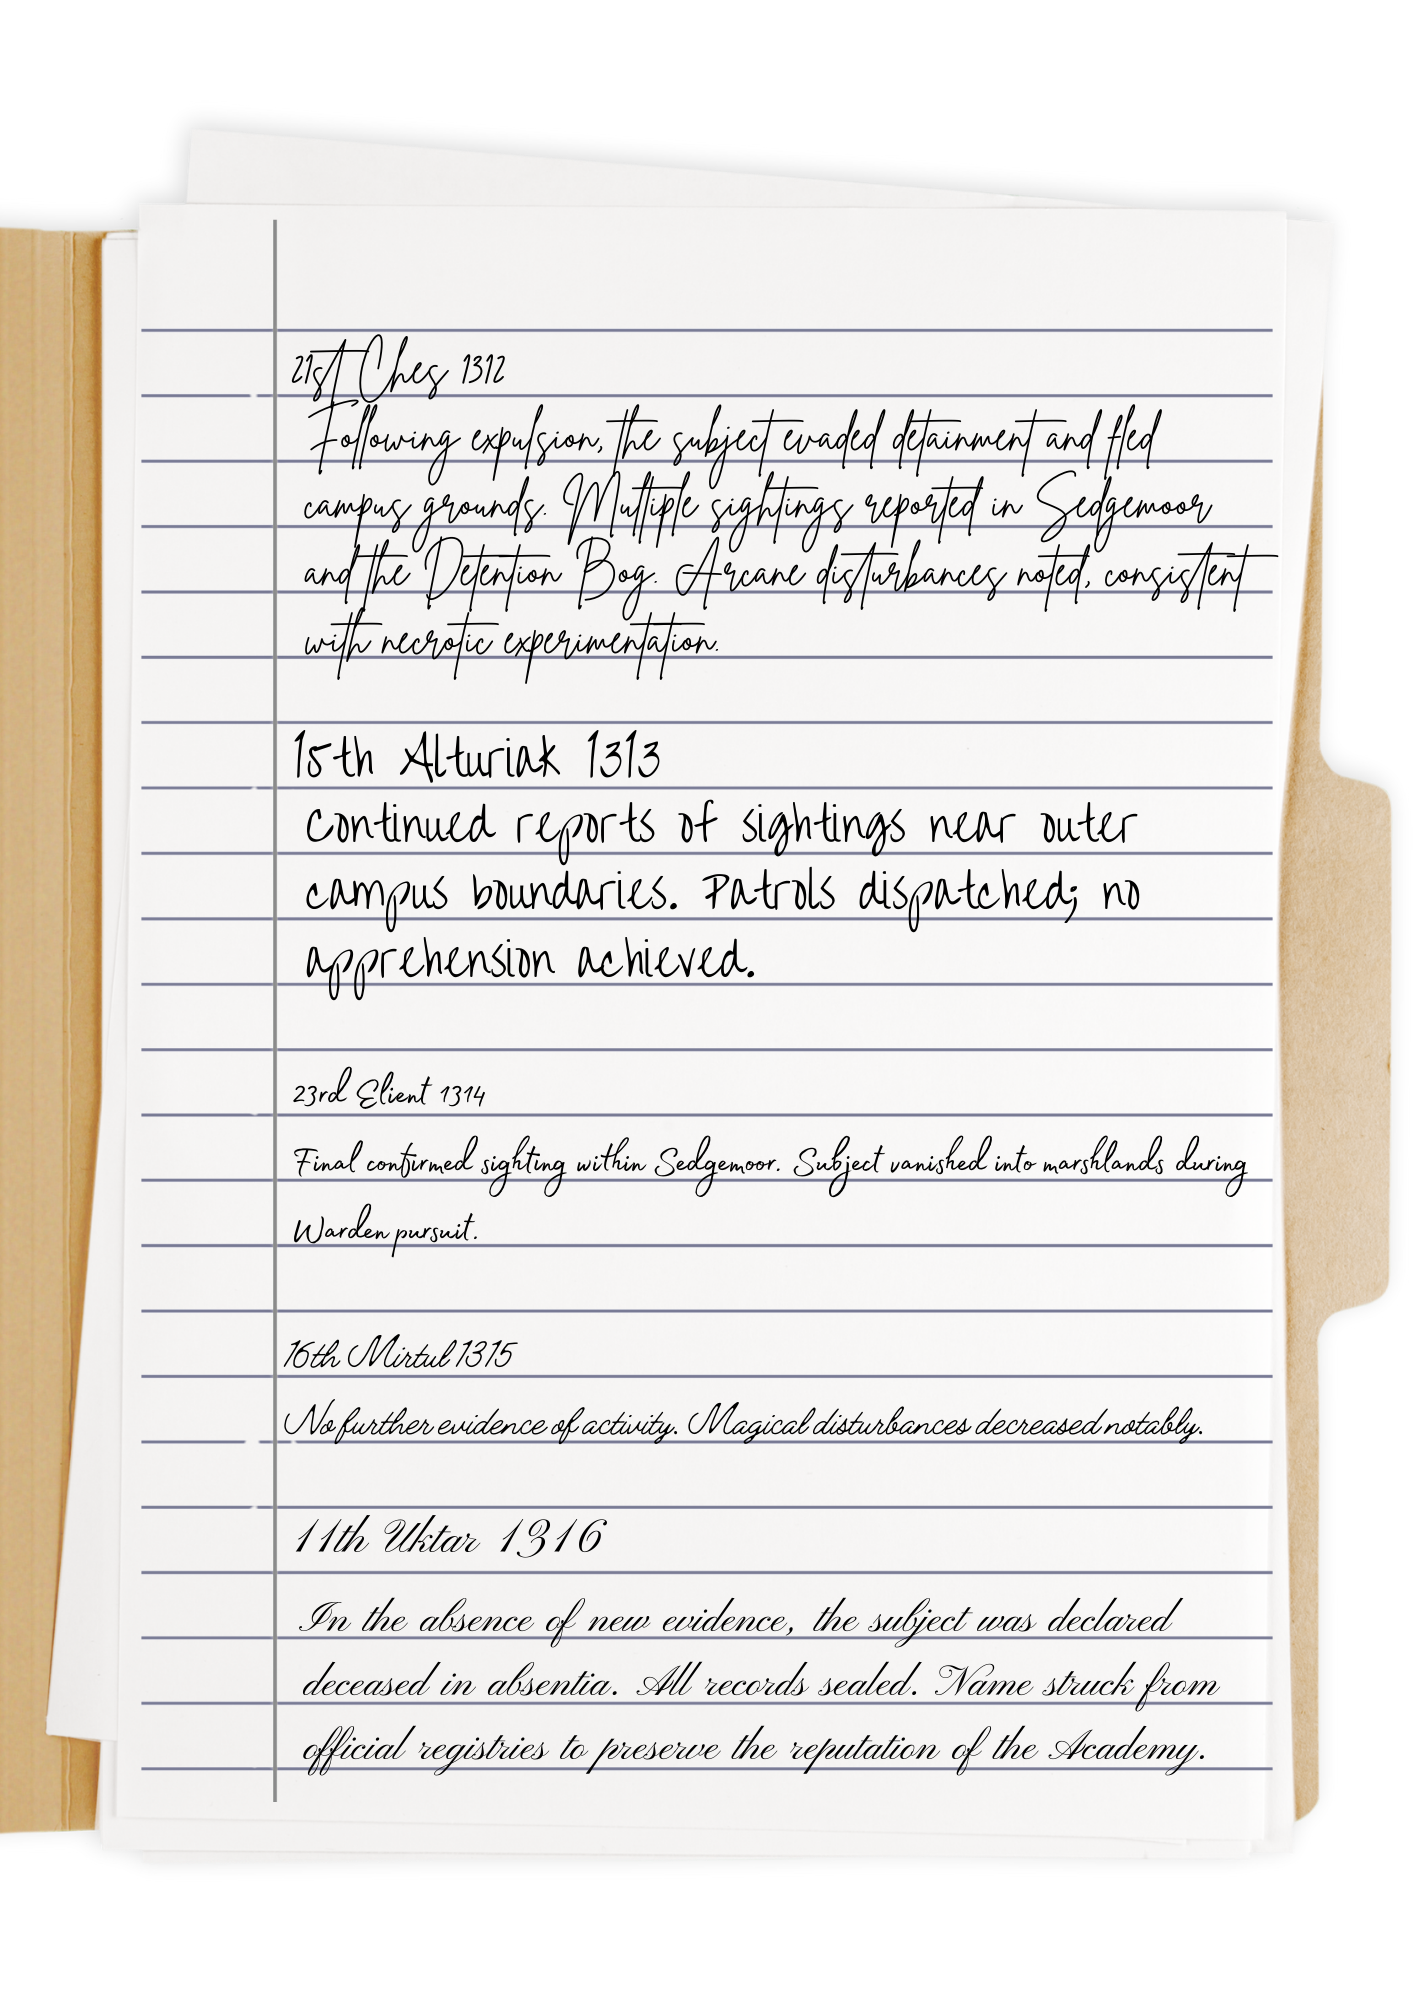 21st Ches 1312
Following expulsion, the subject evaded detainment and fled
campus grounds. Multiple sightings reported in Sedgemoor
and the Detention Bog. Arcane disturbances noted, consistent
with necrotic experimentation.
15th Alturiak 1313
Continued reports of sightings near outer
campus boundaries. Patrols dispatched; no
apprehension achieved.
23rd Elient 1314
Final confirmed sighting within Sedgemoor. Subject vanished into marshlands during
Warden pursuit.
16th Mirtul 1315
No further evidence of activity. Magical disturbances decreased notably.
11th Uktar 1316
In the absence of new evidence, the subject was declared
deceased in absentia. All records sealed. Name struck from
official registries to preserve the reputation of the Academy.